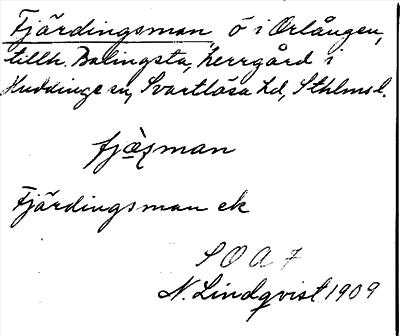 Fjärdingsman, ö i Orlången,
tillh. Balingsta, herrgård i
Huddinge sn, Svartlösa hd, Sthlms l.
fjæ̀ʒman
Fjärdingsman ek
S O A 7
N. Lindqvist 1909